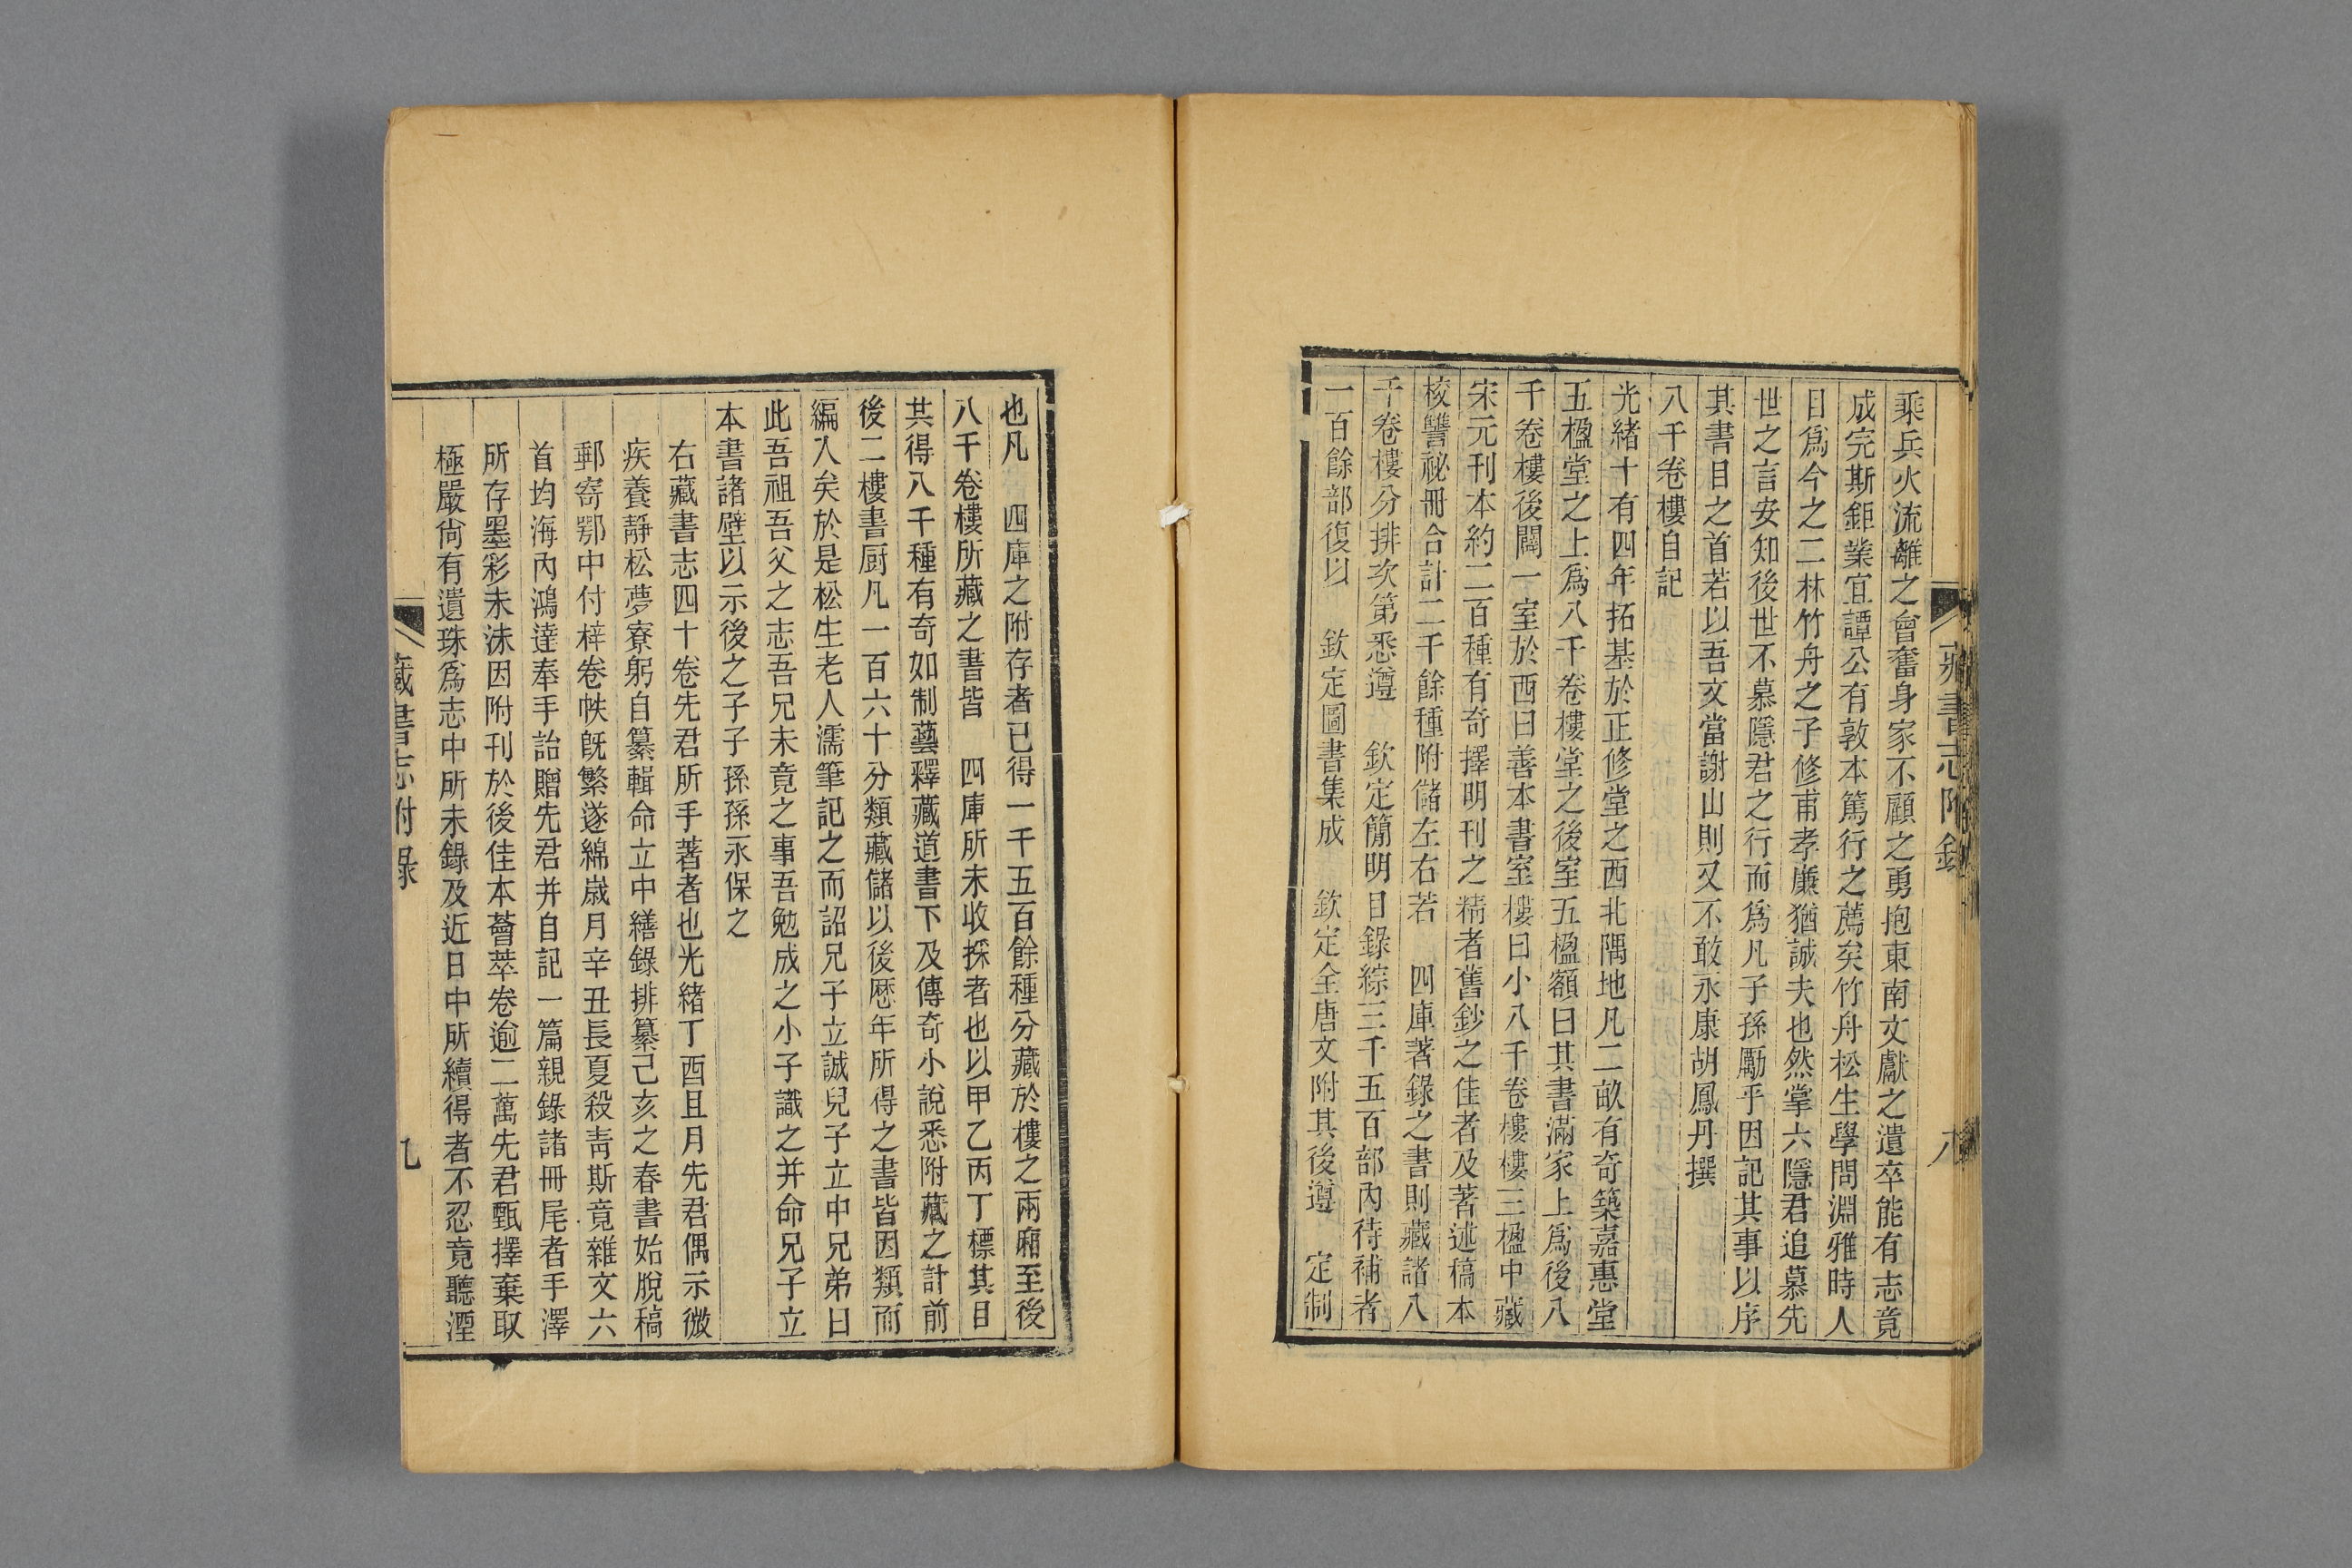 藏書志附錄
八
乘兵火流離之會奮身家不顧之勇抱東南文獻之遺卒能有志竟
成完斯鉅業宜譚公有敦本篤行之薦矣竹舟松生學問淵雅時人
目爲今之二林竹舟之子修甫孝廉猶誠夫也然掌六隱君追慕先
世之言安知後世不慕隱君之行而爲凡子孫勵乎因記其事以序
其書目之首若以吾文當謝山則又不敢永康胡鳳丹撰
八千卷樓自記
光緒十有四年拓基於正修堂之西北隅地凡二畝有奇築嘉惠堂
五楹堂之上爲八千卷樓堂之後室五楹額曰其書滿家上爲後八
千卷樓後闢一室於西曰善本書室樓曰小八千卷樓樓三楹中藏
宋元刊本約二百種有奇擇明刊之精者舊鈔之佳者及著述稿本
校讐祕冊合計二千餘種附儲左右若　四庫著錄之書則藏諸八
千卷樓分排次第悉遵　欽定簡明目錄綜三千五百部內待補者
一百餘部復以　欽定圖書集成　欽定全唐文附其後遵　定制
也凡　四庫之附存者已得一千五百餘種分藏於樓之兩廂至後
八千卷樓所藏之書皆　四庫所未收採者也以甲乙丙丁標其目
其得八千種有奇如制藝釋藏道書下及傳奇小說悉附藏之計前
後二樓書厨凡一百六十分類藏儲以後歷年所得之書皆因類而
編入矣於是松生老人濡筆記之而詔兄子立誠兒子立中兄弟曰
此吾祖吾父之志吾兄未竟之事吾勉成之小子識之并命兄子立
本書諸壁以示後之子子孫孫永保之
右藏書志四十卷先君所手著者也光緒丁酉且月先君偶示微
疾養靜松夢寮躬自纂輯命立中繕錄排纂己亥之春書始脫稿
郵寄鄂中付梓卷帙旣繁遂綿歲月辛丑長夏殺青斯竟雜文六
首均海內鴻達奉手詒贈先君并自記一篇親錄諸冊尾者手澤
所存墨彩未沫因附刊於後佳本薈萃卷逾二萬先君甄擇棄取
極嚴尙有遺珠爲志中所未錄及近日中所續得者不忍竟聽湮
藏書志附錄
九